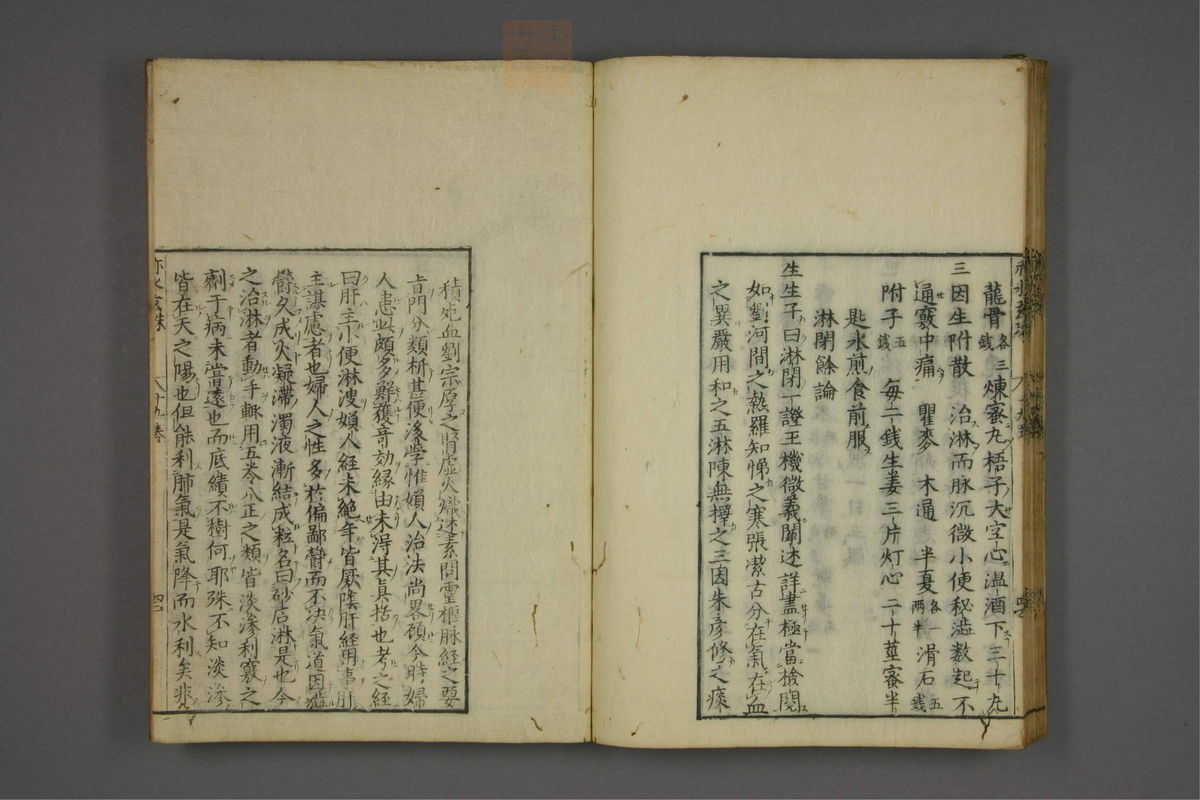 龍骨各三錢煉蜜丸梧子大空心温酒下三十丸
三因生附散　治淋而脉沉微小便秘澁数起不
通竅中痛　瞿麥　木通　半夏各一兩半滑石五錢
附子五錢　毎二錢生姜三片灯心二十莖蜜半
匙水煎食前服
淋閉餘論
生生子曰淋閉一證王機微義闡述詳盡極當檢閲
如劉河間之熱羅知悌之寒張潔古分在氣在血
之異嚴用和之五淋陳無擇之三因朱彦修之痰
積死血劉宗厚之腎虚火熾述素問霊樞脉經之要
旨門分類析甚便後學惟婦人治法尚畧頋今時婦
人患此頗多鮮獲竒効縁由未得其真括也考之經
曰肝主小便淋溲婦人經未絶年皆厥陰肝經用事肝
主謀慮者也婦人之性多於偏鄙欝而不决氣道因澁
欝久成火凝滞濁液漸結成粒名曰砂石淋是也今
之治淋者動手輙用五苓八正之類皆淡滲利竅之
劑于病未甞遠也而底績不樹何耶殊不知淡滲
皆在天之陽也但能利肺氣是氣降而水利矣非
赤水玄珠
八十九巻